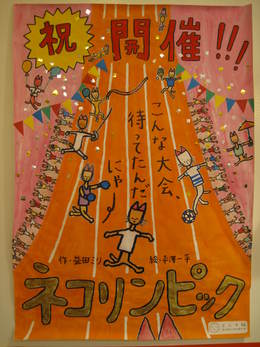 祝
開催!!!
こんな大会、
待ってたんだ
にゃー
作・益田ミリ
絵・平澤一平
ネコリンピック